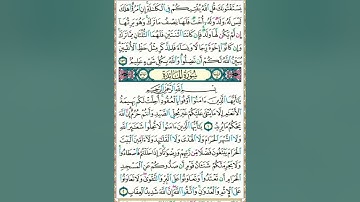 يَسْتَفْتُونَكَ قُلِ ٱللَّهُ يُفْتِيكُمْ فِى ٱلْكَلَـٰلَةِ إِنِ ٱمْرُؤٌا۟ هَلَكَ
لَيْسَ لَهُۥ وَلَدٌ وَلَهُۥٓ أُخْتٌ فَلَهَا نِصْفُ مَا تَرَكَ وَهُوَ يَرِثُهَآ
إِن لَّمْ يَكُن لَّهَا وَلَدٌ فَإِن كَانَتَا ٱثْنَتَيْنِ فَلَهُمَا ٱلثُّلُثَانِ مِمَّا تَرَكَ
وَإِن كَانُوٓا۟ إِخْوَةً رِّجَالًا وَنِسَآءً فَلِلذَّكَرِ مِثْلُ حَظِّ ٱلْأُنثَيَيْنِ
يُبَيِّنُ ٱللَّهُ لَكُمْ أَن تَضِلُّوا۟ وَٱللَّهُ بِكُلِّ شَىْءٍ عَلِيمٌۢ
سُورَةُ المَائِدَةِ
بِسْمِ ٱللَّهِ ٱلرَّحْمَـٰنِ ٱلرَّحِيمِ
يَـٰٓأَيُّهَا ٱلَّذِينَ ءَامَنُوٓا۟ أَوْفُوا۟ بِٱلْعُقُودِ أُحِلَّتْ لَكُم بَهِيمَةُ
ٱلْأَنْعَـٰمِ إِلَّا مَا يُتْلَىٰ عَلَيْكُمْ غَيْرَ مُحِلِّى ٱلصَّيْدِ وَأَنتُمْ حُرُمٌ إِنَّ ٱللَّهَ
يَحْكُمُ مَا يُرِيدُ يَـٰٓأَيُّهَا ٱلَّذِينَ ءَامَنُوا۟ لَا تُحِلُّوا۟ شَعَـٰٓئِرَ ٱللَّهِ
وَلَا ٱلشَّهْرَ ٱلْحَرَامَ وَلَا ٱلْهَدْىَ وَلَا ٱلْقَلَـٰٓئِدَ وَلَآ ءَآمِّينَ ٱلْبَيْتَ
ٱلْحَرَامَ يَبْتَغُونَ فَضْلًا مِّن رَّبِّهِمْ وَرِضْوَٰنًا وَإِذَا حَلَلْتُمْ فَٱصْطَادُوا۟
وَلَا يَجْرِمَنَّكُمْ شَنَـَٔانُ قَوْمٍ أَن صَدُّوكُمْ عَنِ ٱلْمَسْجِدِ
ٱلْحَرَامِ أَن تَعْتَدُوا۟ وَتَعَاوَنُوا۟ عَلَى ٱلْبِرِّ وَٱلتَّقْوَىٰ وَلَا تَعَاوَنُوا۟
عَلَى ٱلْإِثْمِ وَٱلْعُدْوَٰنِ وَٱتَّقُوا۟ ٱللَّهَ إِنَّ ٱللَّهَ شَدِيدُ ٱلْعِقَابِ